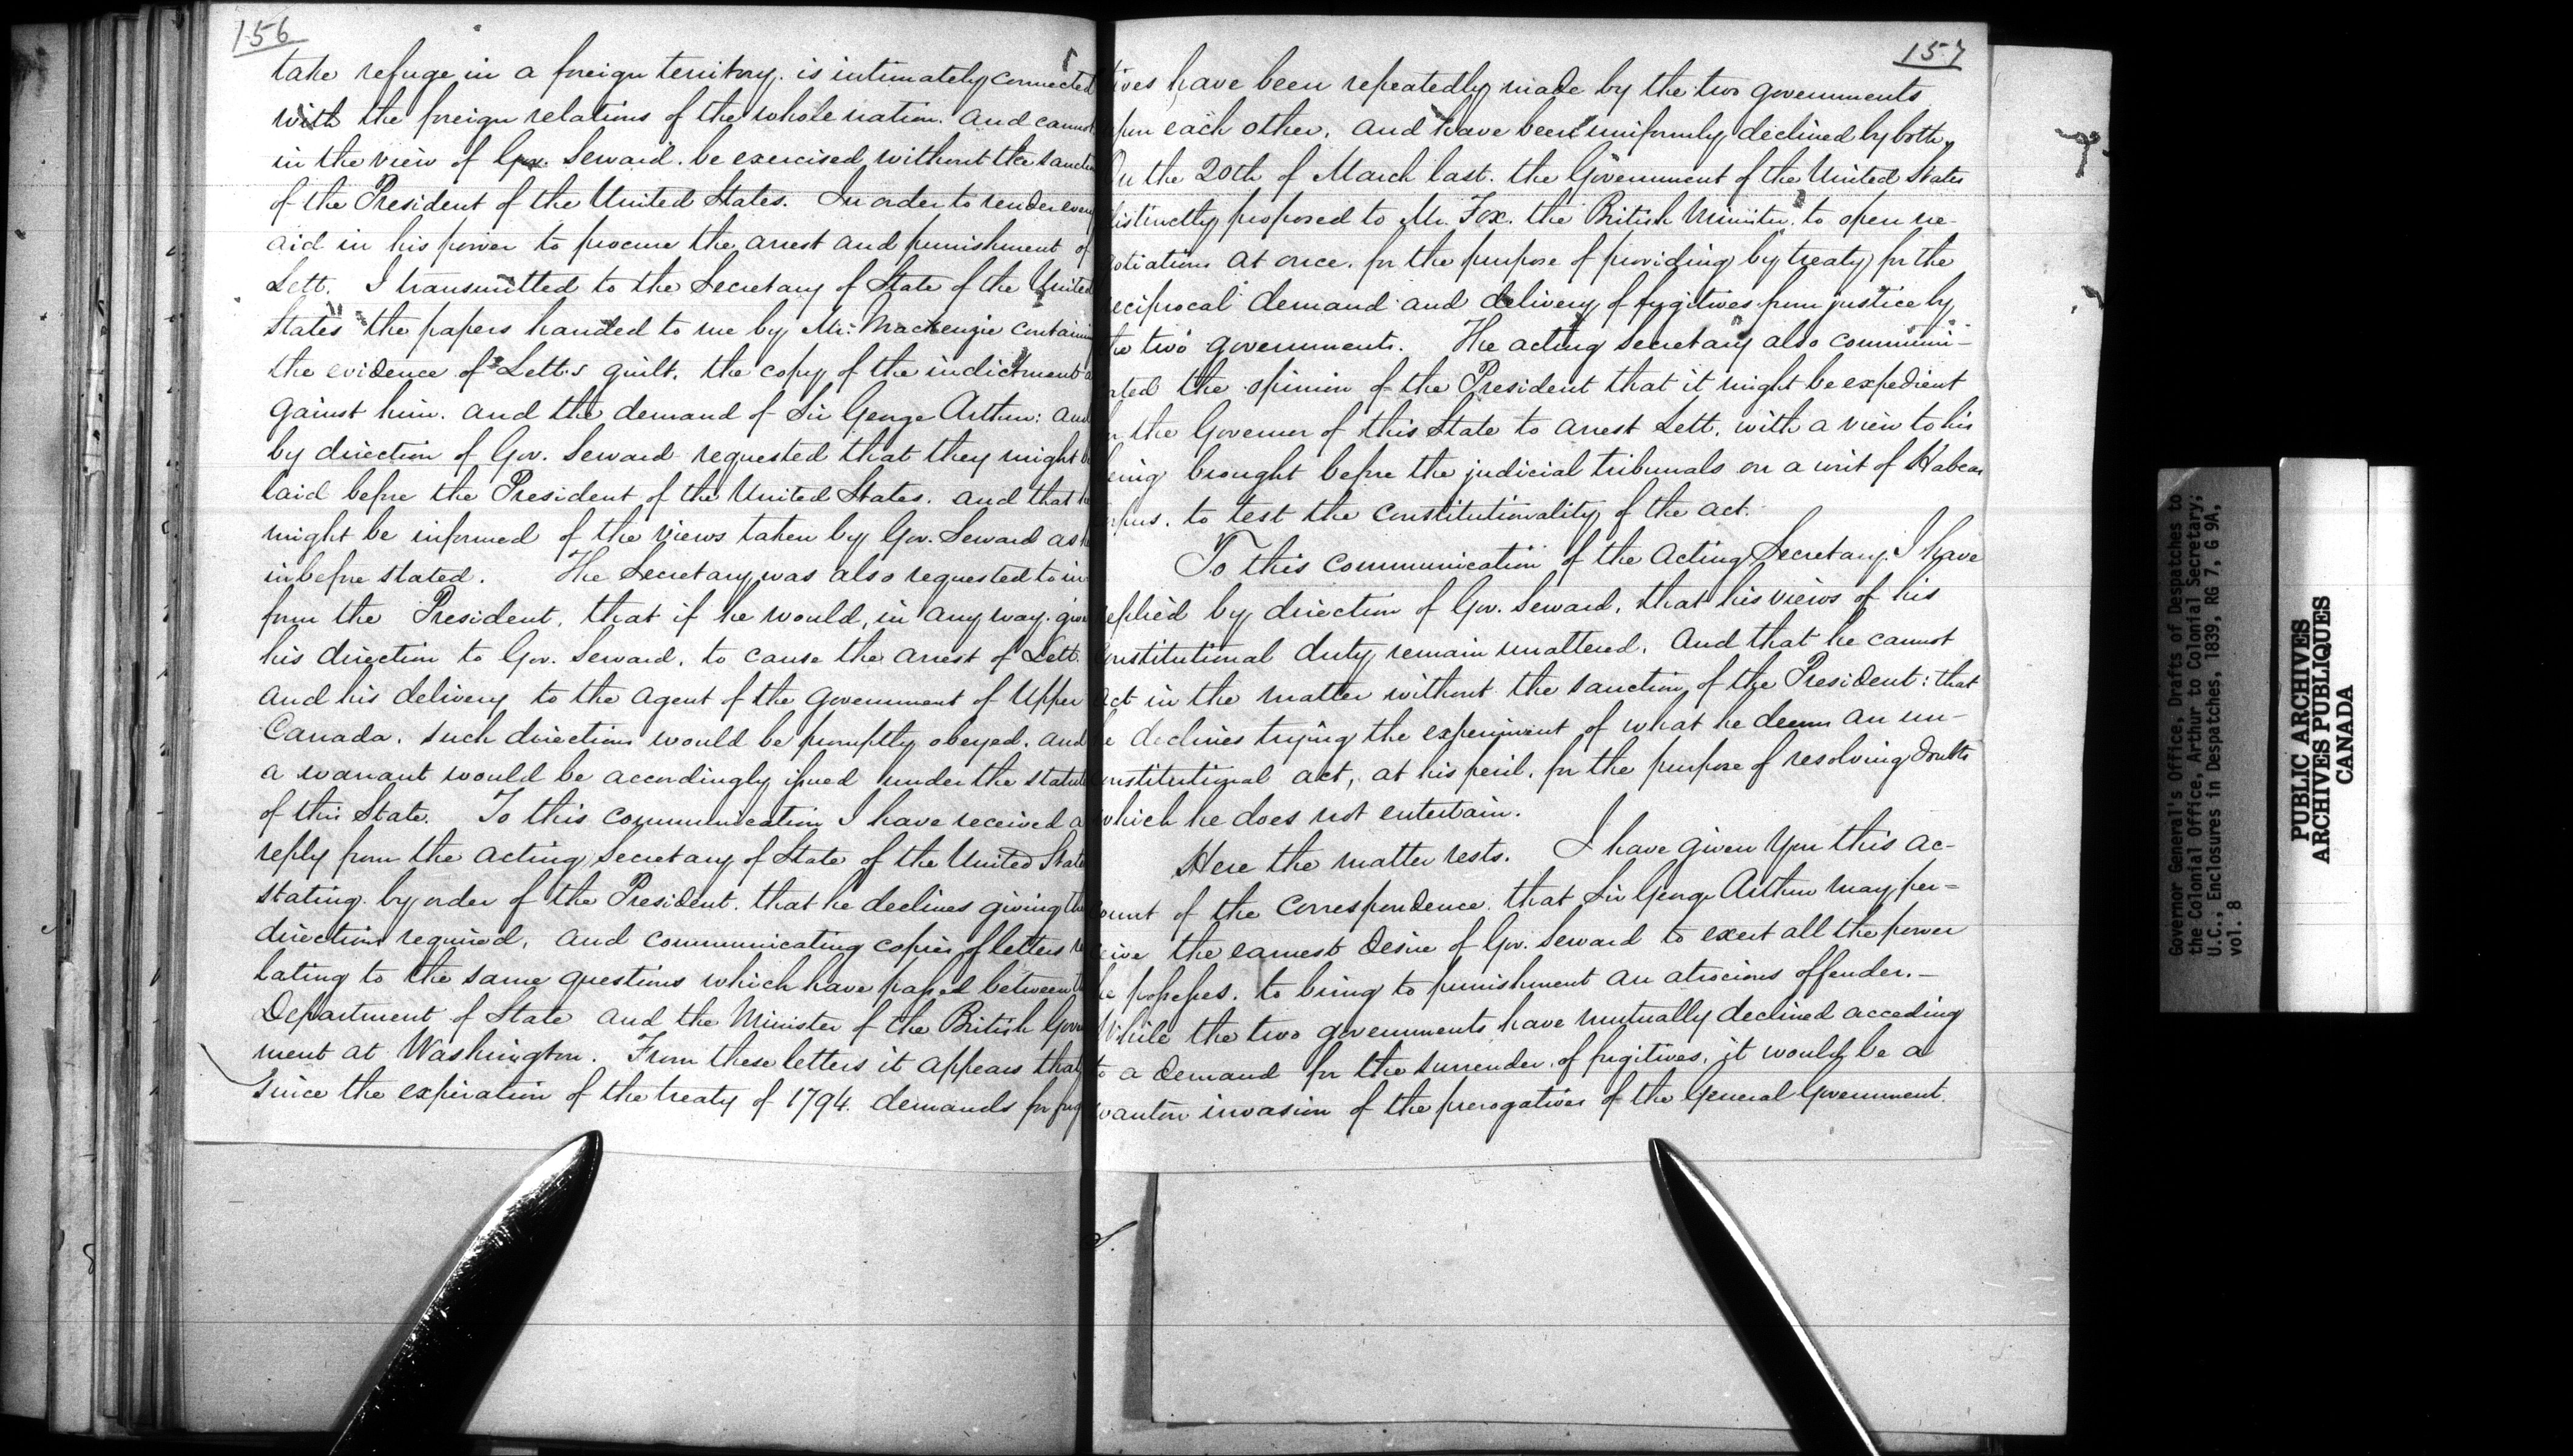 156
take refuge in a foreign territory. is intimately connected
with the foreign relations of the whole nation. and cannot
in the view of Gov. Seward. be exercised without the sancti
of the President of the United States. In order to render every
aid in his power to procure the arrest and punishment of
Lett. I transmitted to the Secretary of State of the United
States the papers handed to me by Mr. Mackenzie containin
the evidence of Lett's guilt. the copy of the indictment a
gainst him. and the demand of Sir George Arthur: and
by direction of Gov. Seward requested that they might be
laid before the President of the United States. and that he
might be informed of the views taken by Gov. Seward as he
inbefore stated. The Secretary was also requested to in
form the President, that if he would, in any way. give
his direction to Gov. Seward, to cause the arrest of Lett.
and his delivery to the agent of the government of Upper
Canada, such direction would be promptly obeyed. and
a warrant would be accordingly issued under the statute
of this State. To this communication I have received a
reply from the acting Secretary of State of the United State
stating by order of the President. that he declines giving the
direction required, and communicating copies of letters re
lating to the same questions which have passed between the
Department of State and the Minister of the British Govern
ment at Washington. From these letters it appears that
since the expiration of the treaty of 1794. demands for fug
157
tives have been repeatedly made by the two governments
upon each other, and have been uniformly declined by both.
On the 20th of March last. the Government of the United States
distinctly proposed to Mr. Fox. the British Minister. to open ne-
gotiations at once. for the purpose of providing by treaty for the
reciprocal demand and delivery of fugitives from justice by
the two governments. The acting Secretary also communi-
cated the opinion of the President that it might be expedient
for the Governor of this State to arrest Lett, with a view to his
being brought before the judicial tribunals on a writ of Habeas
orpus, to test the constitutionality of the act.
To this communication of the acting Secretary. I have
replied by direction of Gov. Seward, that his views of his
constitutional duty remain unaltered, and that he cannot
act in the matter without the sanction of the President: that
he declines trying the experiment of what he deems an un-
constitutional act, at his peril, for the purpose of resolving doubts
which he does not entertain.
Here the matter rests. I have given you this ac-
count of the correspondence. that Sir George Arthur may per=
ceive the earnest desire of Gov. Seward to exert all the power
he possesses. to bring to punishment an atrocious offender.-
While the two governments have mutually declined acceding
to a demand for the surrender of fugitives, it would be a
wanton invasion of the prerogatives of the General Government.
Governor General's Office, Drafts of Despatches to
the Colonial Office, Arthur to Colonial Secretary;
U.C., Enclosures in Despatches, 1839, RG 7, G 9A,
vol. 8
PUBLIC ARCHIVES
ARCHIVES PUBLIQUES
CANADA